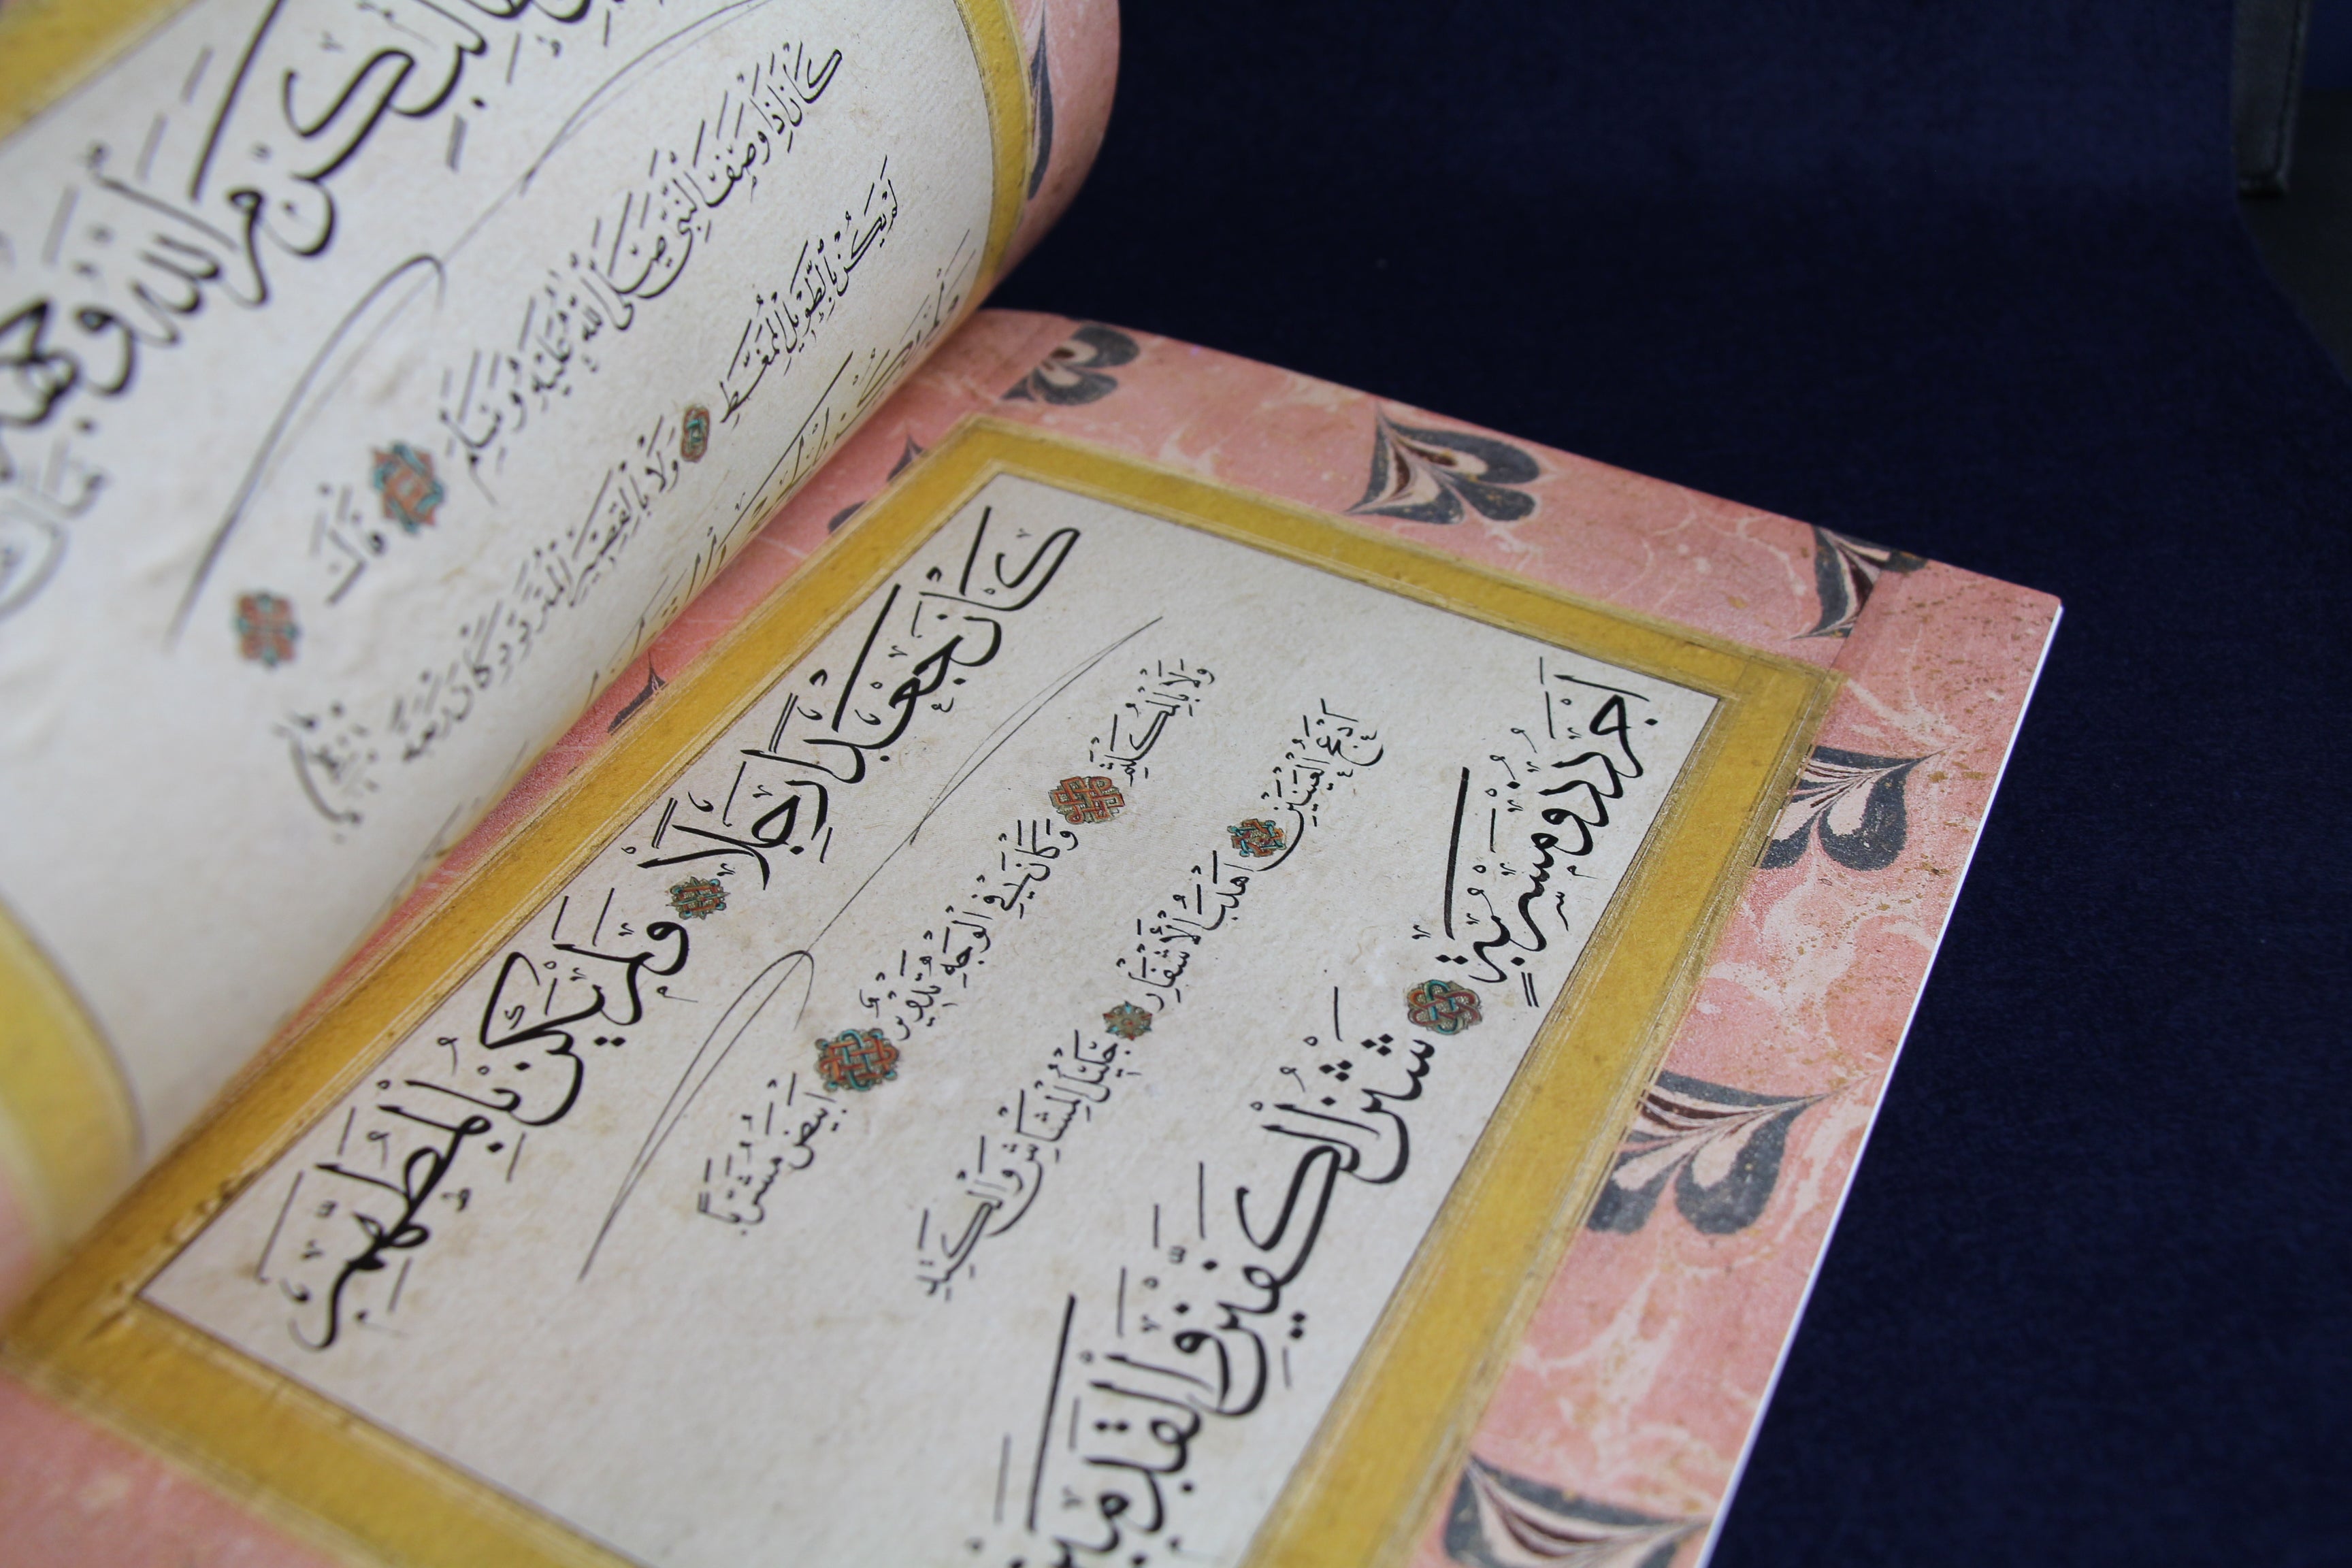 كَرَّمَ اللهُ وَجْهَهُ
كَانَ إِذَا وَصَفَ النَّبِيَّ صَلَّى اللهُ عَلَيْهِ وَسَلَّمَ قَالَ
لَمْ يَكُنْ بِالطَّوِيلِ الْمُمَغَّطِ وَلَا بِالْقَصِيرِ الْمُتَرَدِّدِ وَكَانَ رَبْعَةً
وَلَمْ يَكُنْ
كَانَ جَعْدًا رَجِلًا وَلَمْ يَكُنْ بِالْمُطَهَّمِ
وَلَا بِالْمُكَلْثَمِ وَكَانَ فِي الْوَجْهِ تَدْوِيرٌ أَبْيَضُ مُشْرَبًا
أَدْعَجُ الْعَيْنَيْنِ أَهْدَبُ الْأَشْفَارِ جَلِيلُ الْمُشَاشِ وَالْكَتِدِ
أَجْرَدُ ذُو مَسْرُبَةٍ شَثْنُ الْكَفَّيْنِ وَالْقَدَمَيْنِ